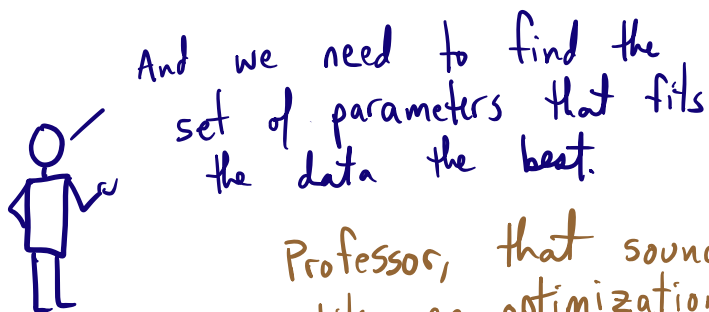 And we need to find the
set of parameters that fits
the data the best.
Professor, that
optimization